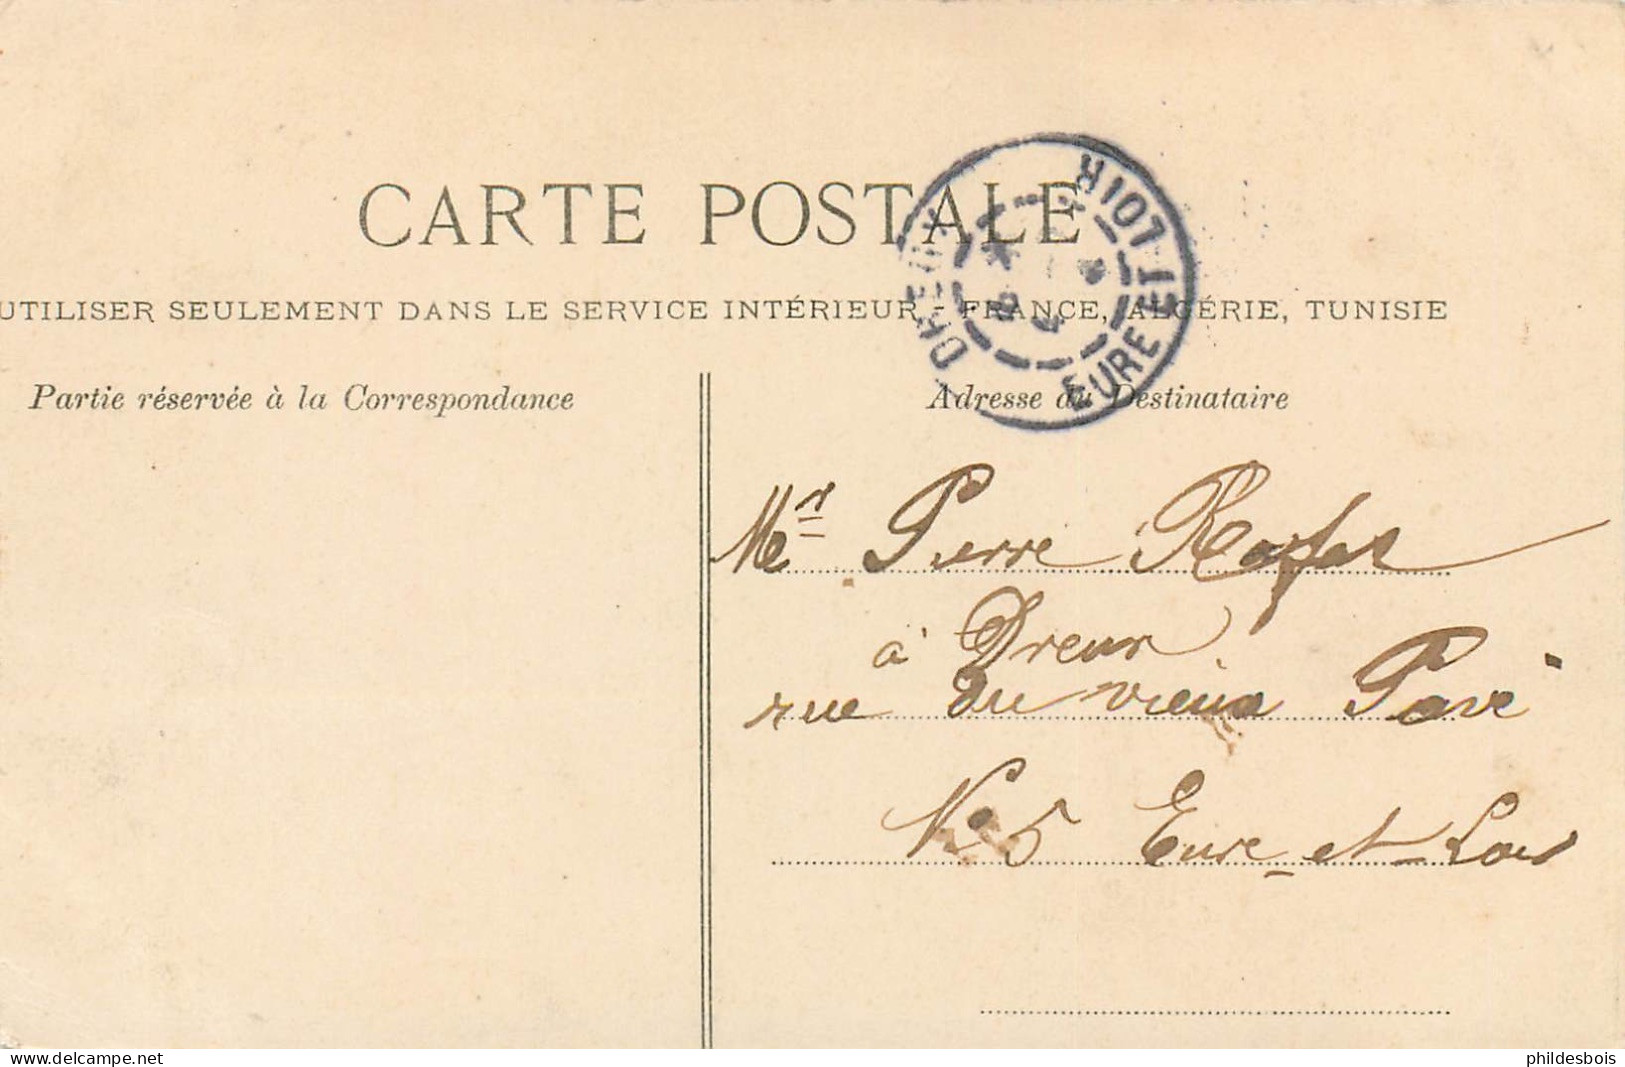 CARTE POSTALE
UTILISER SEULEMENT DANS LE SERVICE INTÉRIEUR - FRANCE, ALGÉRIE, TUNISIE
DREUX
EURE ET LOIR
Partie réservée à la Correspondance
Adresse du Destinataire
Mr Pierre
à Dreux
rue du vieux Pavé
No 5 Eure et Loir
delcampe.net
phildesbois